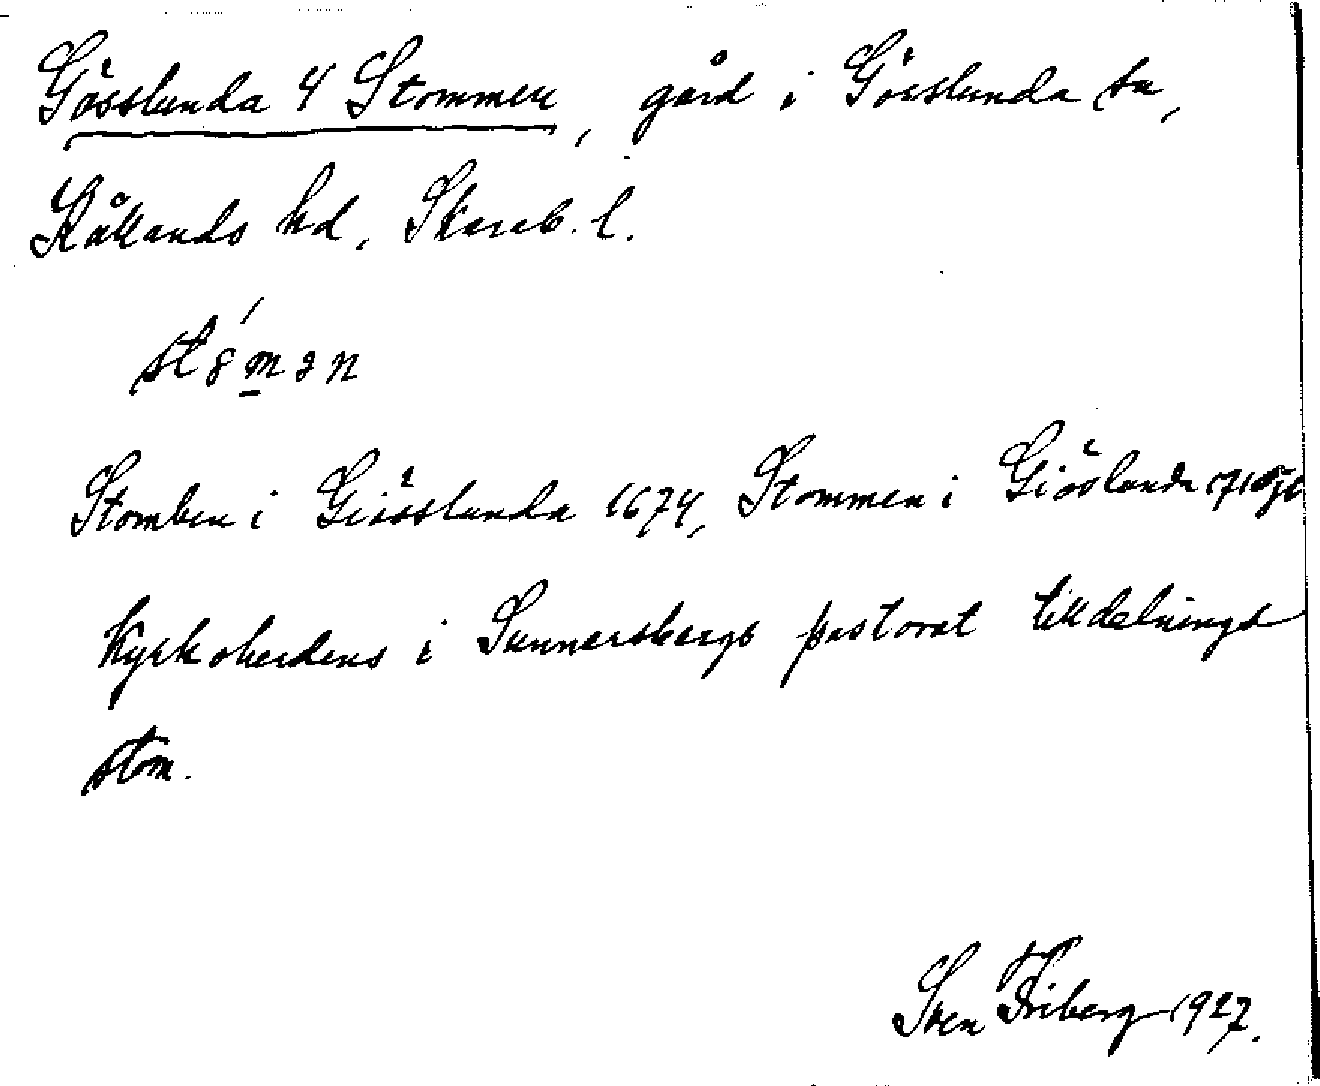 Gösslunda 4 Stommen, gård i Gösslunda sn,
Kållands hd, Skarab. l.
Stomben i Giösslunda 1674, Stommen i Giöslunda
Kyrkoherdens i Sunnersbergs pastorat tilldelnings
stom.
Sven Friberg 1927.